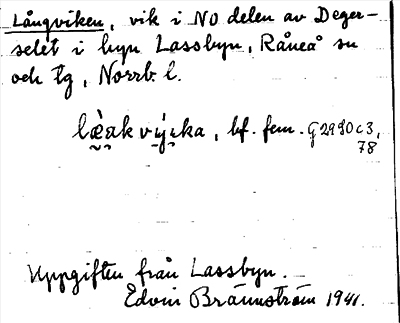 Långviken, vik i NO delen av Deger-
selet i byn Lassbyn, Råneå sn
och tg, Norrb. l.
læ̀akvýcka, bf. fem. G2990c3,
78
Uppgiften från Lassbyn.
Edvin Brännström 1941.